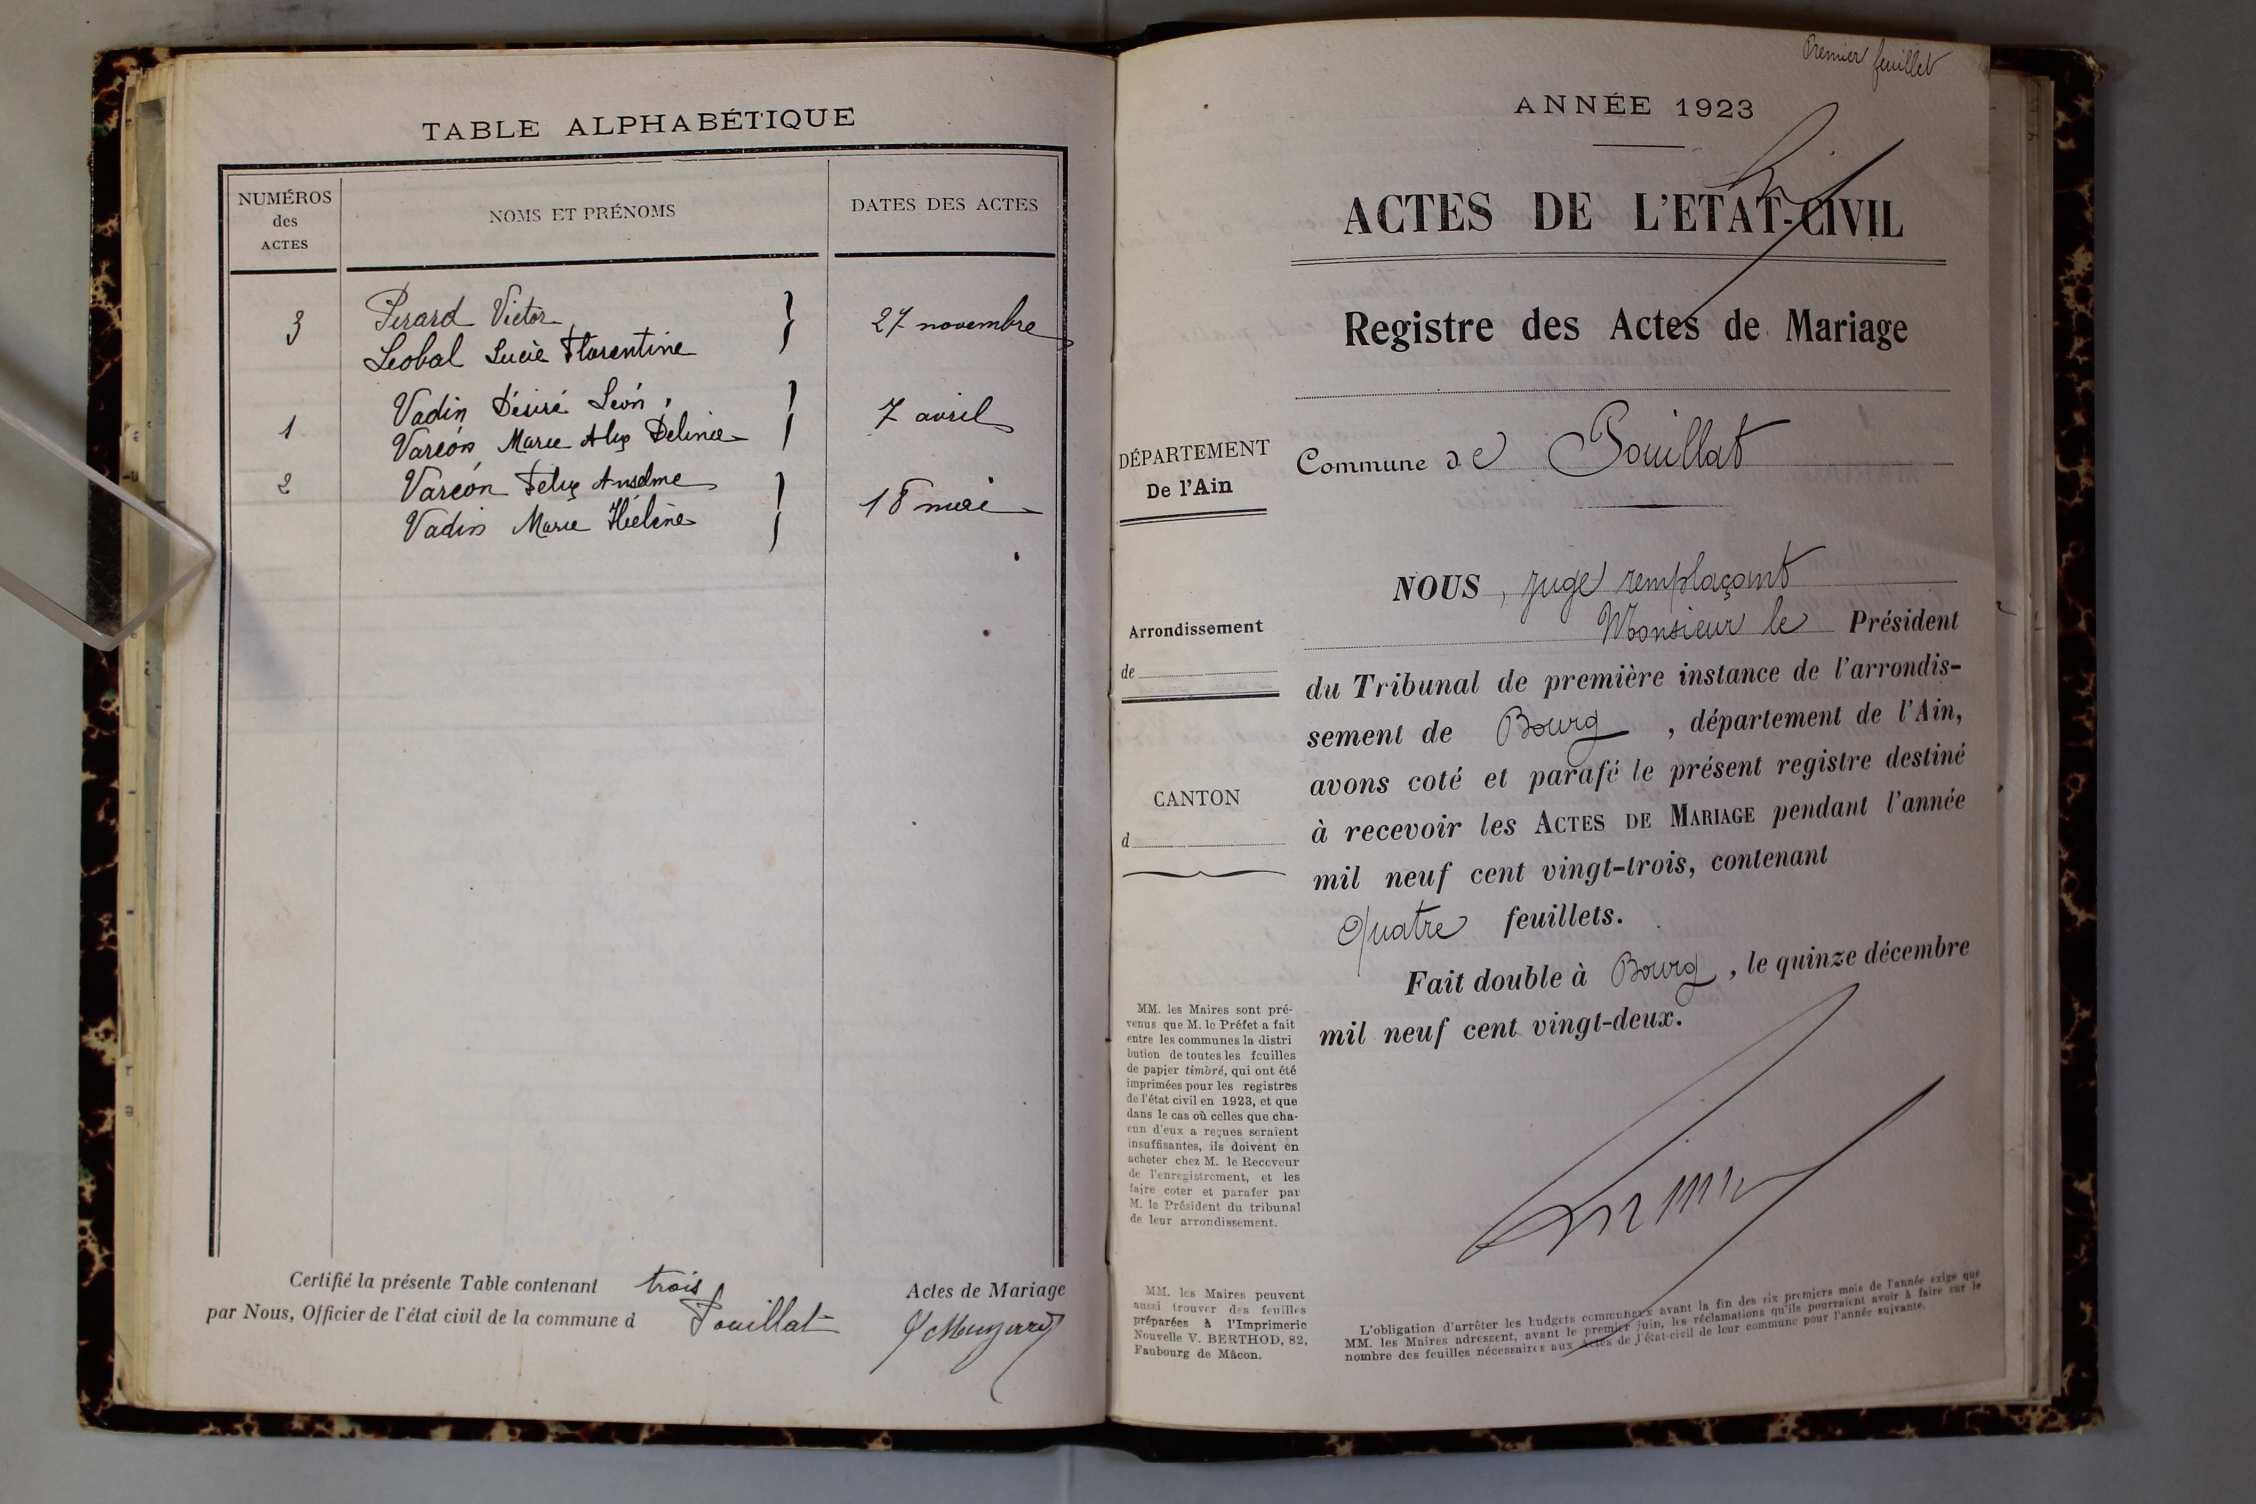 TABLE ALPHABÉTIQUE
NUMÉROS
des
ACTES
NOMS ET PRÉNOMS
DATES DES ACTES
3
Pérard Victor
27 novembre
Léobal Lucie Florentine
Vadin Désiré Léon
1
7 avril
Varéon Marie Alix Delinie
2
Varéon Félix Anselme
18 mai
Vadin Marie Hélène
Certifié la présente Table contenant trois Actes de Mariage
par Nous, Officier de l'état civil de la commune d Pouillat
Premier feuillet
ANNÉE 1923
ACTES DE L'ETAT-CIVIL
Registre des Actes de Mariage
DÉPARTEMENT
De l'Ain
Commune de Pouillat
Arrondissement
de
CANTON
d
NOUS, juge remplaçant
Monsieur le Président
du Tribunal de première instance de l'arrondis-
sement de Bourg, département de l'Ain,
avons coté et parafé le présent registre destiné
à recevoir les ACTES DE MARIAGE pendant l'année
mil neuf cent vingt-trois, contenant
Quatre feuillets.
Fait double à Bourg, le quinze décembre
mil neuf cent vingt-deux.
MM. les Maires sont pré-
venus que M. le Préfet a fait
entre les communes la distri
bution de toutes les feuilles
de papier timbré, qui ont été
imprimées pour les registres
de l'état civil en 1923, et que
dans le cas où celles que cha-
cun d'eux a reçues seraient
insuffisantes, ils doivent en
acheter chez M. le Receveur
de l'enregistrement, et les
faire coter et parafer par
M. le Président du tribunal
de leur arrondissement.
MM. les Maires peuvent
aussi trouver des feuilles
préparées à l'Imprimerie
Nouvelle V. BERTHOD, 82,
Faubourg de Mâcon.
L'obligation d'arrêter les budgets communaux avant la fin des six premiers mois de l'année exige que
MM. les Maires adressent, avant le premier juin, les réclamations qu'ils pourraient avoir à faire sur le
nombre des feuilles nécessaires aux Actes de l'état-civil de leur commune pour l'année suivante.